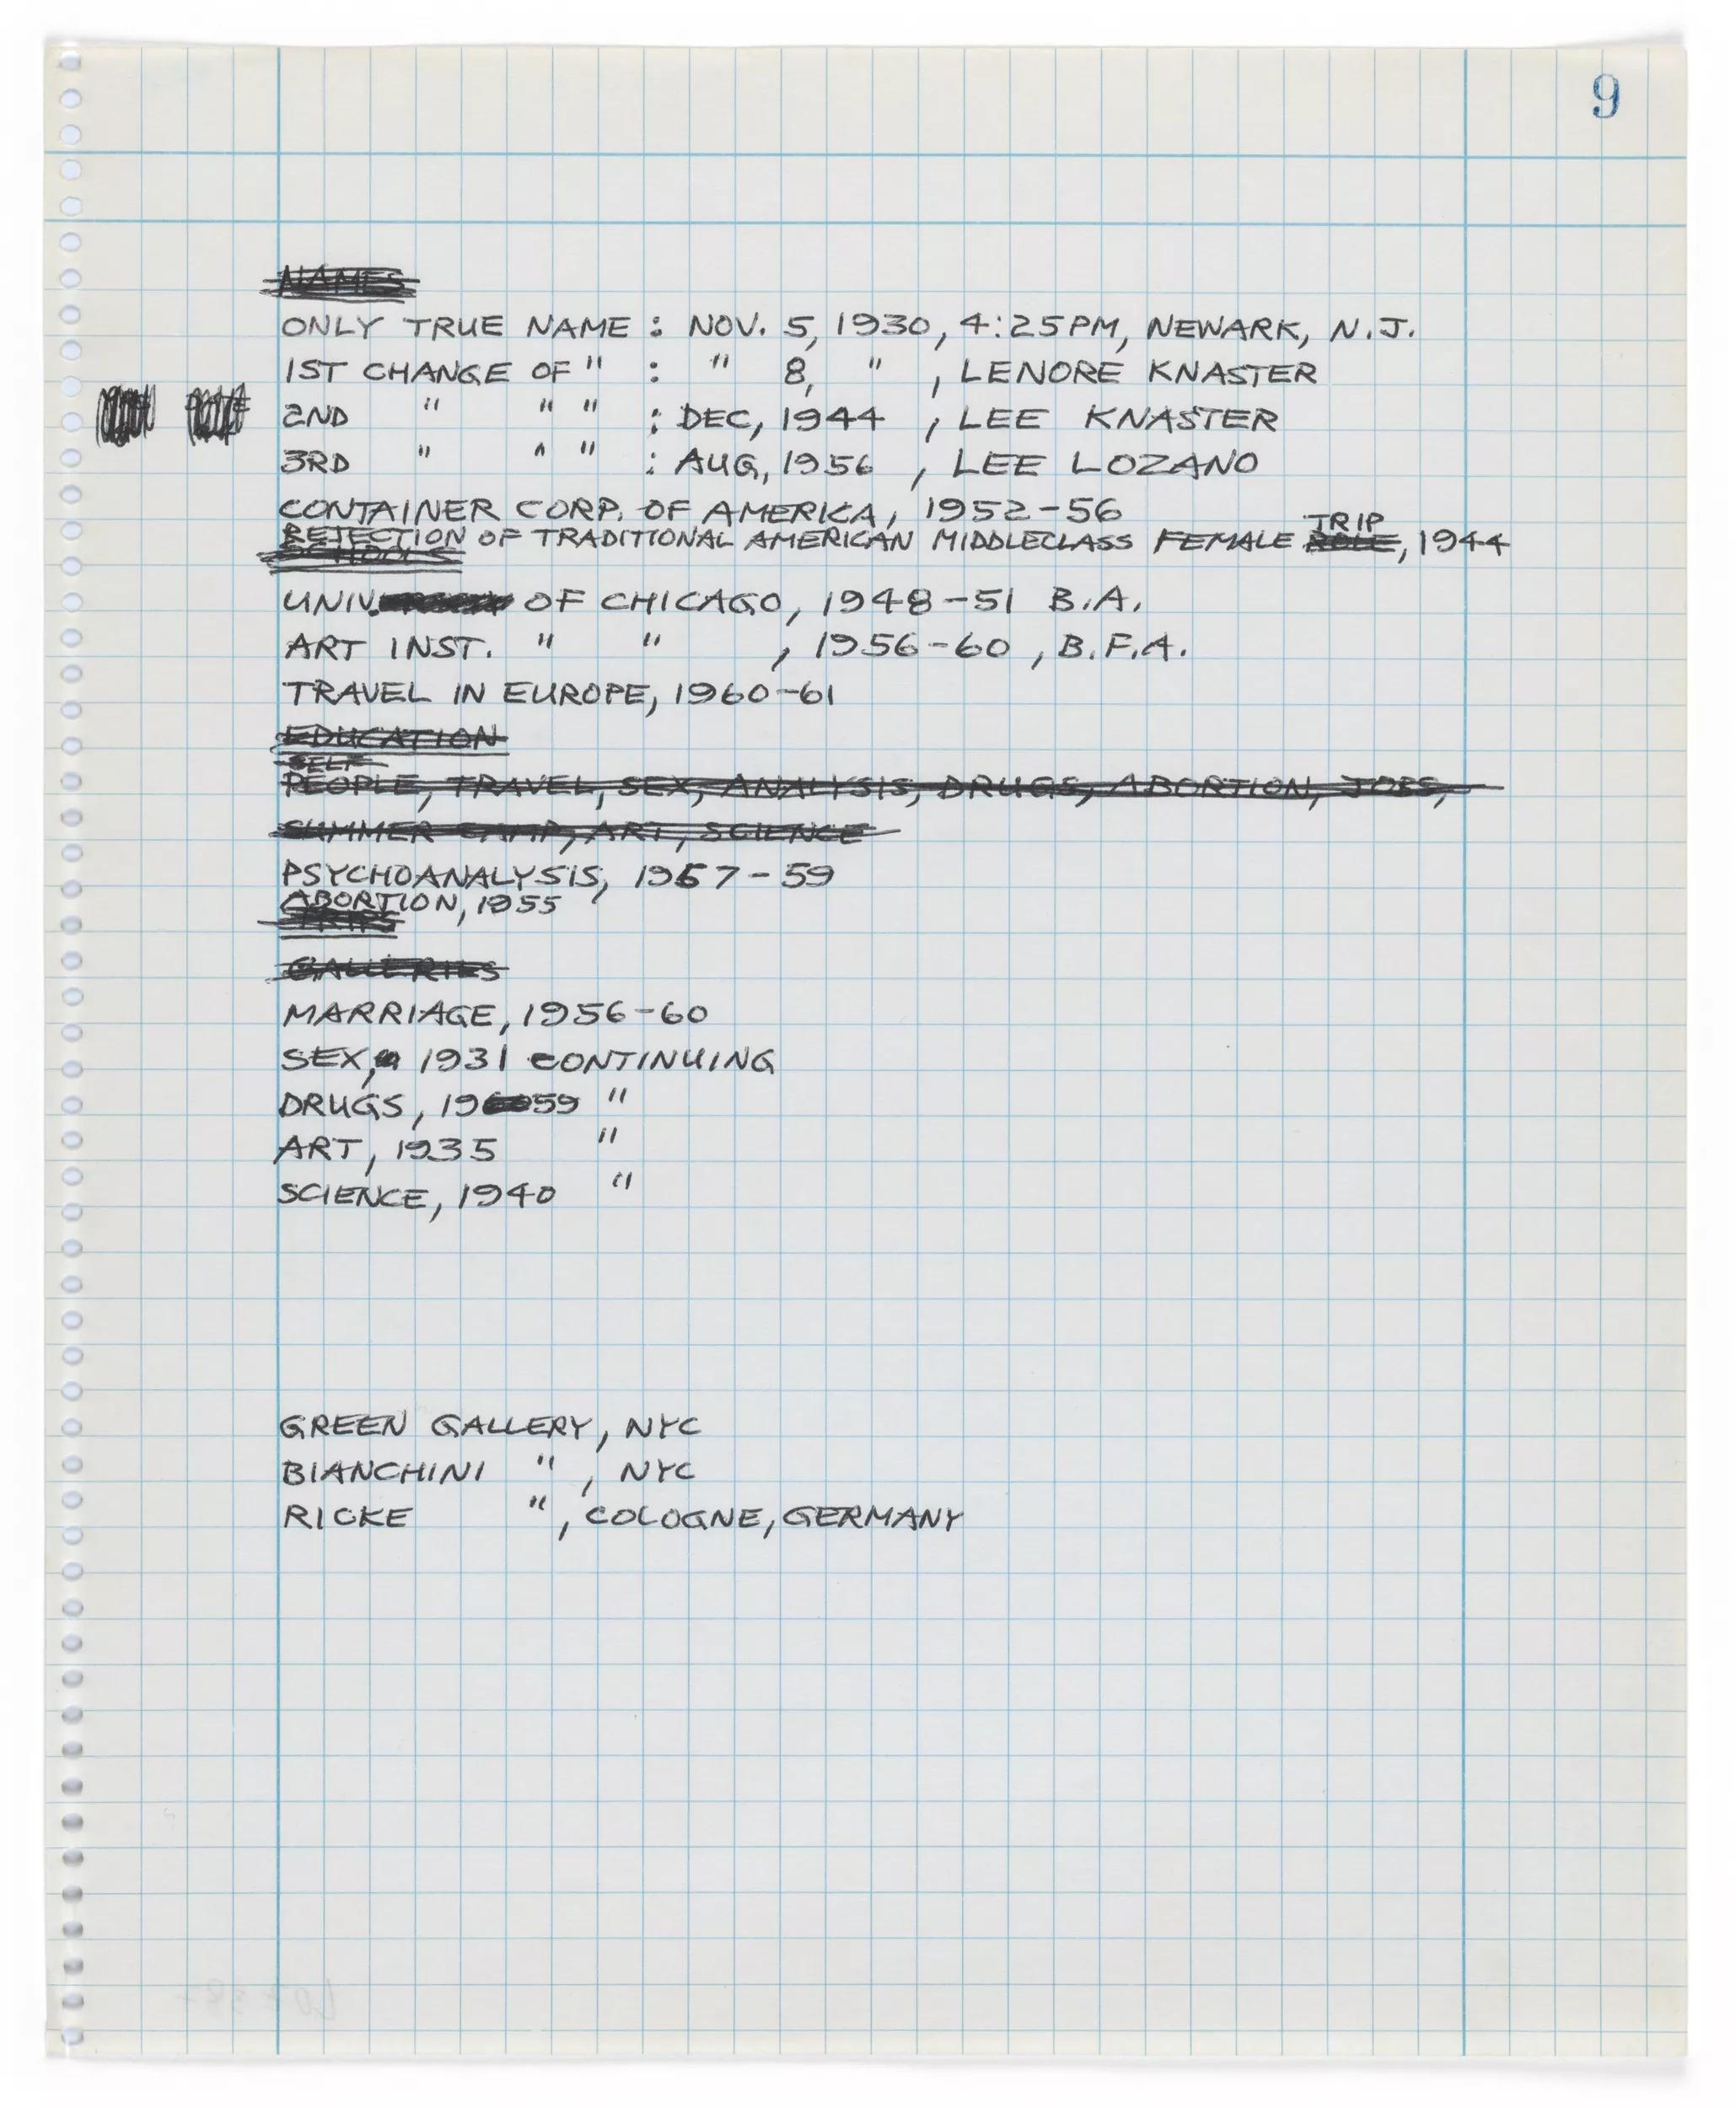 9
NAMES
ONLY TRUE NAME : NOV. 5, 1930, 4:25PM, NEWARK, N.J.
1ST CHANGE OF " : " 8, " , LENORE KNASTER
2ND " " " : DEC, 1944 , LEE KNASTER
3RD " " " : AUG, 1956 , LEE LOZANO
CONTAINER CORP. OF AMERICA, 1952-56
TRIP
REJECTION OF TRADITIONAL AMERICAN MIDDLECLASS FEMALE ROLE, 1944
SCHOOLS
UNIV. OF CHICAGO, 1948-51 B.A.
ART INST. " " , 1956-60, B.F.A.
TRAVEL IN EUROPE, 1960-61
EDUCATION
SELF
PEOPLE, TRAVEL, SEX, ANALYSIS, DRUGS, ABORTION, JOBS,
SUMMER CAMP, ART, SCIENCE
PSYCHOANALYSIS, 1957-59
ABORTION, 1955
TRIPS
GALLERIES
MARRIAGE, 1956-60
SEX, 1931 CONTINUING
DRUGS, 1959 "
ART, 1935 "
SCIENCE, 1940 "
GREEN GALLERY, NYC
BIANCHINI " , NYC
RICKE " , COLOGNE, GERMANY